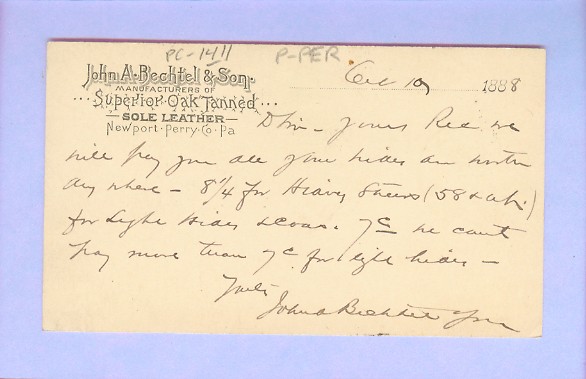 PC-1411 P-PER
John A. Bechtel & Son.
MANUFACTURERS OF
Superior Oak Tanned
SOLE LEATHER
Newport-Perry-Co-Pa
Oct 10 1888
D Sir - Yours Recd we
will pay you all your hides are worth
any where - 8 1/4 for Heavy Steers (58 & up.)
for Light Hides & Cows. 7c we cant
pay more than 7c for light hides -
Yours
John A Bechtel & Son